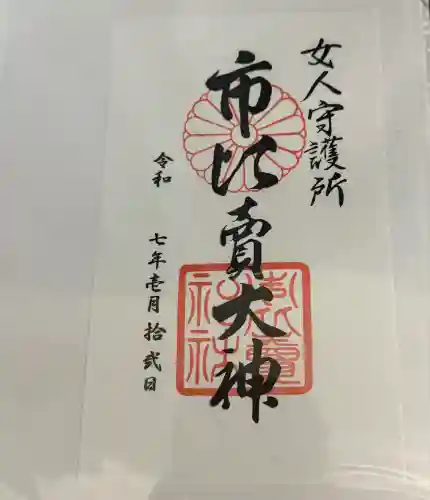 女人守護所
市比賣大神
令和 七年壱月拾弐日